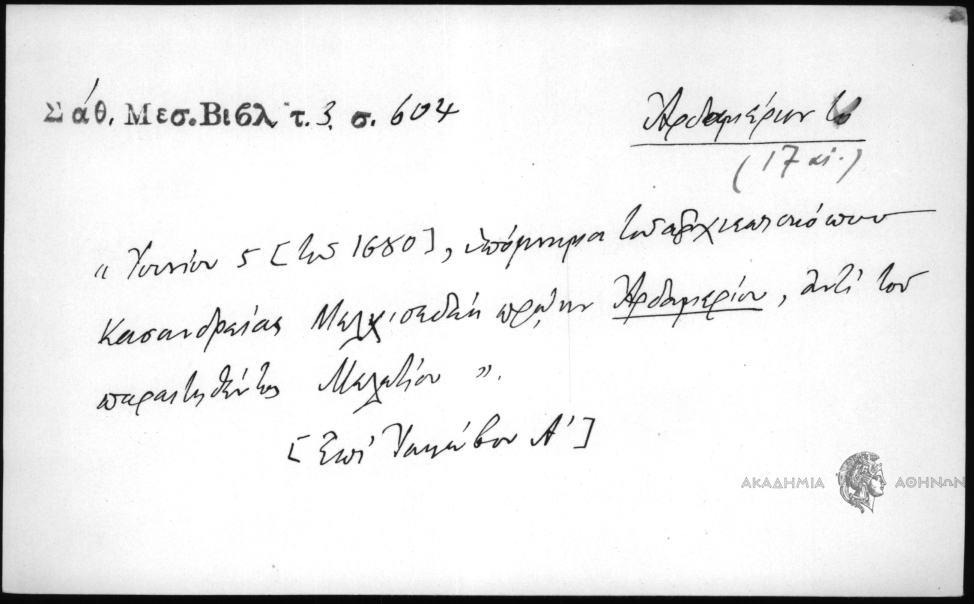 Σάθ. Μεσ. Βιβλ τ. 3. σ. 604
Ἀρδαμέριον το
(17 αἰ.)
« Ἰουνίου 5 [του 1680], ὑπόμνημα του ἀρχιεπισκόπου
Κασανδρείας Μελχισεδὲκ πρώην Ἀρδαμερίου, ἀντὶ του
παραιτηθέντος Μελετίου ».
[Ἐπὶ Ἰακώβου Α']
ΑΚΑΔΗΜΙΑ ΑΘΗΝΩΝ